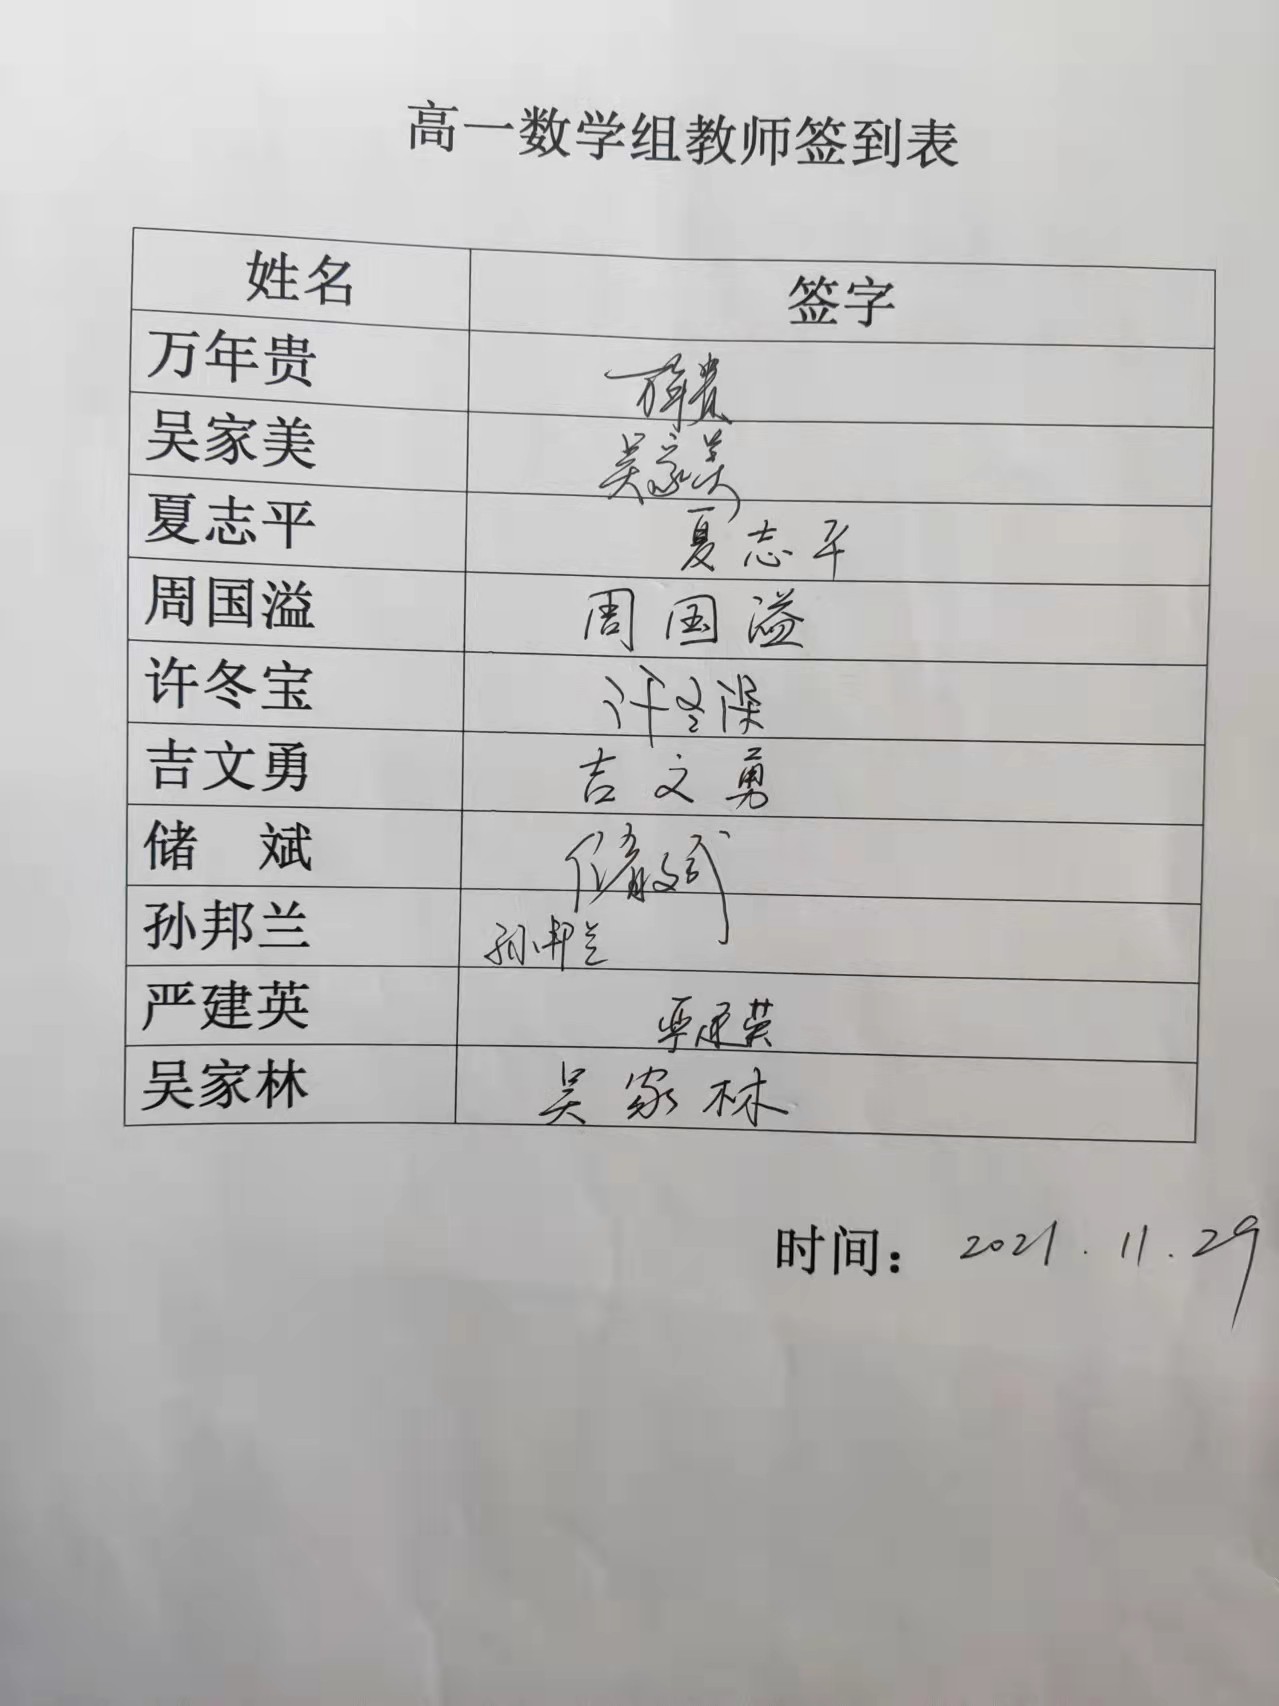 高一数学组教师签到表
姓名 签字
万年贵 万年贵
吴家美 吴家美
夏志平 夏志平
周国溢 周国溢
许冬宝 许冬
吉文勇 吉文勇
储 斌 储斌
孙邦兰 孙邦兰
严建英 严建英
吴家林 吴家林
时间：2021.11.29